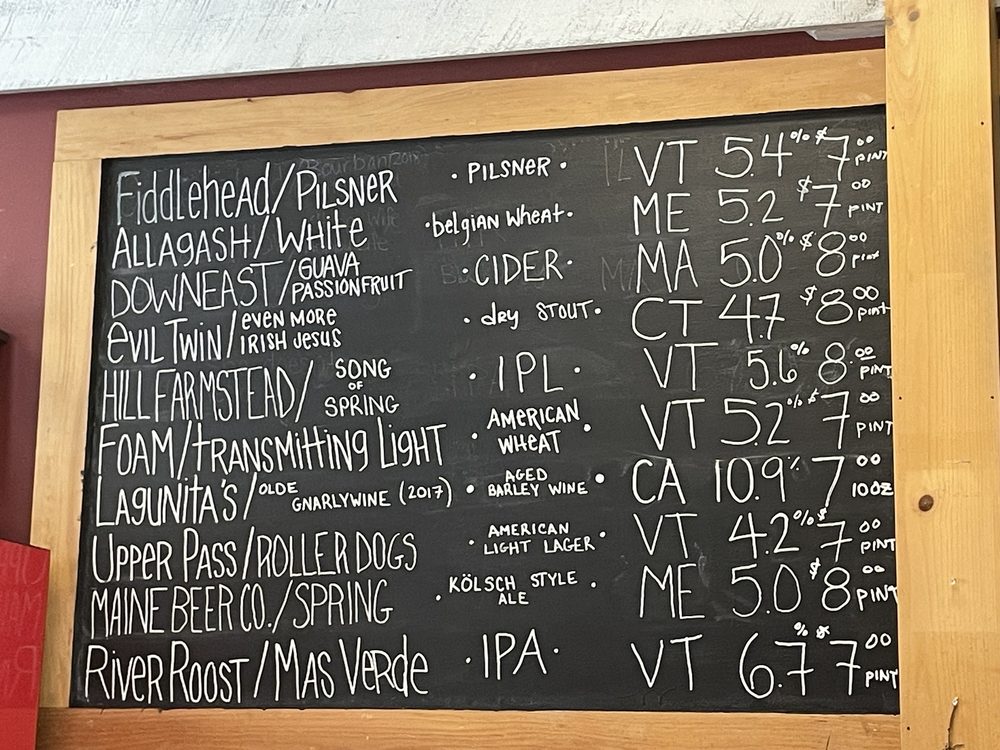 Fiddlehead/PILSNER · PILSNER · VT 5.4% $7.00 PINT
ALLAGASH/WHITE · belgian Wheat · ME 5.2 $7.00 PINT
DOWNEAST/GUAVA PASSIONFRUIT · CIDER · MA 5.0% $8.00 PINT
EVIL TWIN/EVEN MORE IRISH JESUS · dry STOUT · CT 4.7 $8.00 PINT
HILL FARMSTEAD/SONG OF SPRING · IPL · VT 5.6% 8.00 PINT
FOAM/TRANSMITTING LIGHT · AMERICAN WHEAT · VT 5.2% $7.00 PINT
LAGUNITA'S/OLDE GNARLYWINE (2017) · AGED BARLEY WINE · CA 10.9% 7.00 10OZ
UPPER PASS/ROLLER DOGS · AMERICAN LIGHT LAGER · VT 4.2% $7.00 PINT
MAINE BEER CO./SPRING · KÖLSCH STYLE ALE · ME 5.0 $8.00 PINT
RIVER ROOST/MAS VERDE · IPA · VT 6.7% $7.00 PINT